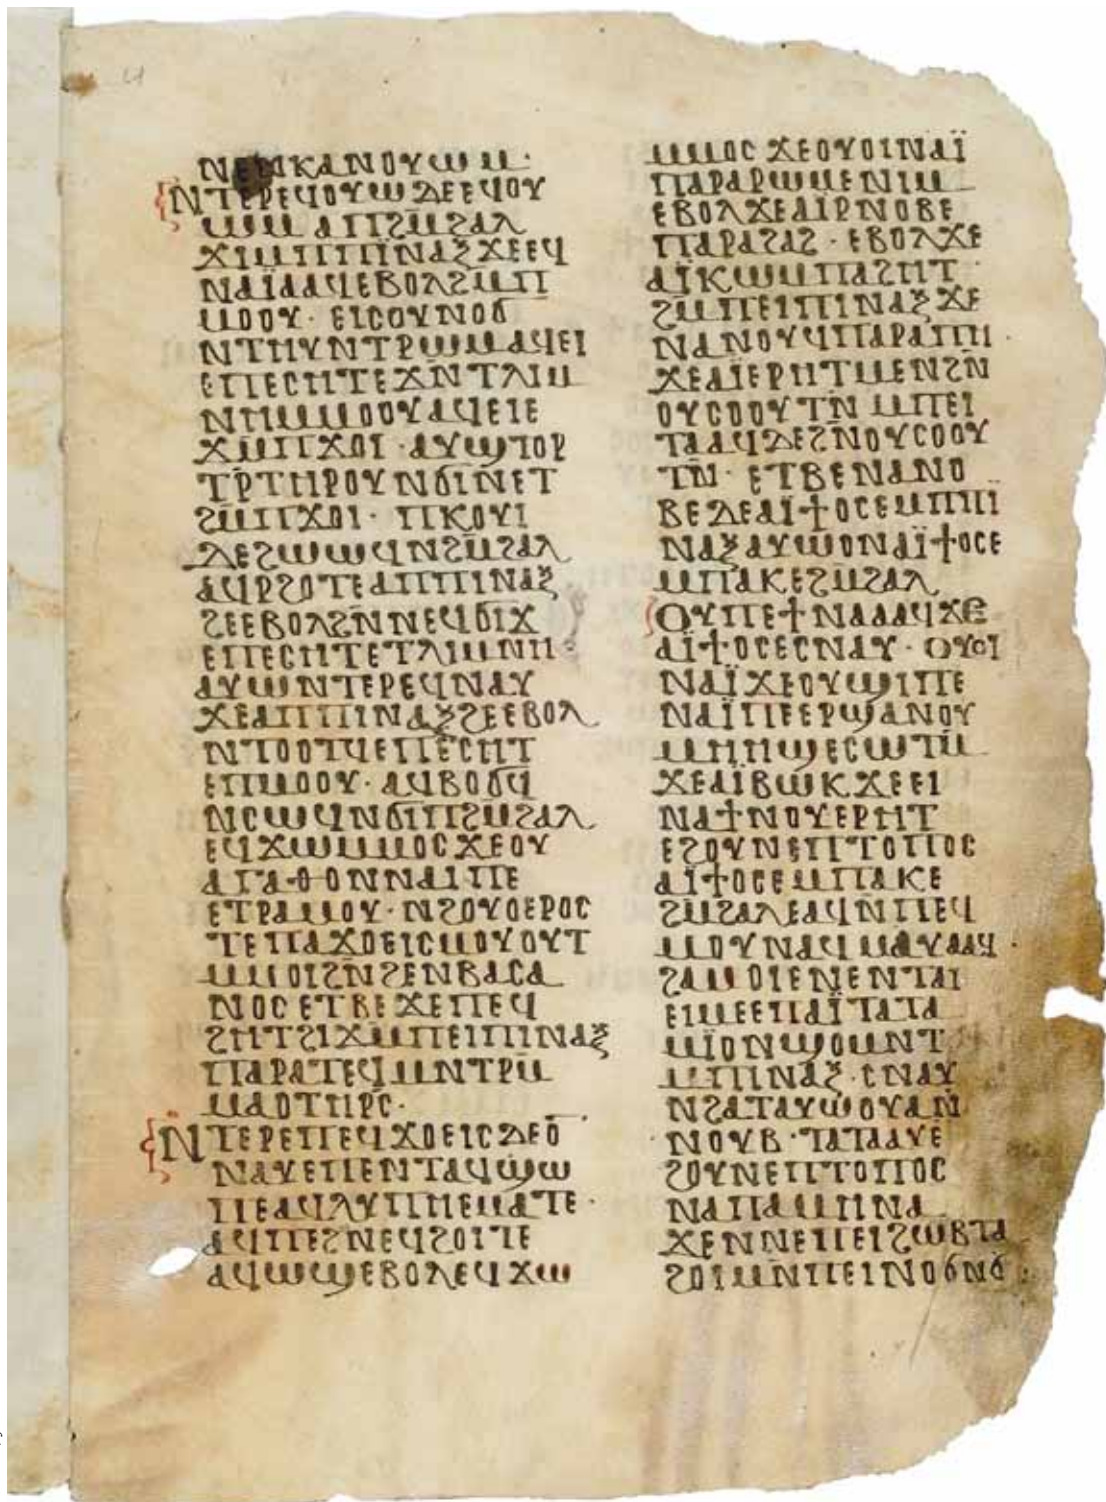 ⲛⲉⲙⲕⲁⲛⲟⲩⲱⲙ·
ⲛⲧⲉⲣⲉϥⲟⲩⲱ ⲇⲉⲉϥⲟⲩ
ⲱⲙ ⲁⲡϩⲙ̅ϩⲁⲗ
ϫⲓⲙⲡⲡⲓⲛⲁⲝϫⲉⲉϥ
ⲛⲁⲓ̈ⲁⲁϥⲉⲃⲟⲗϩⲙ̅ⲡ
ⲙⲟⲟⲩ· ⲉⲓⲥⲟⲩⲛⲟϭ
ⲛⲧⲏⲩⲛⲧⲣⲱⲙⲁϥⲉⲓ
ⲉⲡⲉⲥⲏⲧⲉϫⲛⲧⲗⲓⲙ
ⲛⲏⲙⲙⲟⲟⲩⲁϥⲉⲓⲉ
ϫⲙ̅ⲡϫⲟⲓ· ⲁⲩϣⲧⲟⲣ
ⲧⲣ̅ⲧⲏⲣⲟⲩⲛϭⲓⲛⲉⲧ
ϩⲙ̅ⲡϫⲟⲓ· ⲡⲕⲟⲩⲓ
ⲇⲉϩⲱⲱϥⲛϩⲙ̅ϩⲁⲗ
ⲁϥⲣϩⲟⲧⲉⲁⲡⲡⲓⲛⲁⲝ
ϩⲉⲉⲃⲟⲗϩⲛ̅ⲛⲉϥϭⲓϫ
ⲉⲡⲉⲥⲏⲧⲉⲧⲗⲓⲙⲛⲏ·
ⲁⲩⲱⲛⲧⲉⲣⲉϥⲛⲁⲩ
ϫⲉⲁⲡⲡⲓⲛⲁⲝϩⲉⲉⲃⲟⲗ
ⲛⲧⲟⲟⲧϥⲉⲡⲉⲥⲏⲧ
ⲉⲡⲙⲟⲟⲩ· ⲁϥⲃⲟϭϥ
ⲛⲥⲱϥⲛϭⲓⲡϩⲙ̅ϩⲁⲗ
ⲉϥϫⲱⲙⲙⲟⲥϫⲉⲟⲩ
ⲁⲅⲁⲑⲟⲛⲛⲁⲓⲡⲉ
ⲉⲧⲣⲁⲙⲟⲩ· ⲛϩⲟⲩⲟⲉⲣⲟⲥ
ⲧⲉⲡⲁϫⲟⲉⲓⲥⲙⲟⲩⲟⲩⲧ
ⲙⲙⲟⲓϩⲛ̅ϩⲉⲛⲃⲁⲥⲁ
ⲛⲟⲥⲉⲧⲃⲉϫⲉⲡⲉϥ
ϩⲏⲧϩⲓϫⲙ̅ⲡⲉⲓⲡⲓⲛⲁⲝ
ⲡⲁⲣⲁⲧⲉϥⲙⲛⲧⲣⲙ̅
ⲙⲁⲟⲧⲏⲣⲥ·
ⲛⲧⲉⲣⲉⲡⲉϥϫⲟⲉⲓⲥⲇⲉⲟ̅
ⲛⲁⲩⲉⲡⲉⲛⲧⲁϥϣⲱ
ⲡⲉⲁϥⲗⲩⲡⲏⲉⲙⲁⲧⲉ·
ⲁϥⲡⲉϩⲛⲉϥϩⲟⲓⲧⲉ
ⲁϥⲱϣⲉⲃⲟⲗⲉϥϫⲱ
ⲙⲙⲟⲥ ϫⲉⲟⲩⲟⲓⲛⲁⲓ̈
ⲡⲁⲣⲁⲣⲱⲙⲉⲛⲓⲙ
ⲉⲃⲟⲗϫⲉⲁⲓⲣⲛⲟⲃⲉ
ⲡⲁⲣⲁϩⲁϩ· ⲉⲃⲟⲗϫⲉ
ⲁⲓ̈ⲕⲱⲙⲡⲁϩⲏⲧ
ϩⲙ̅ⲡⲉⲓⲡⲓⲛⲁⲝϫⲉ
ⲛⲁⲛⲟⲩϥⲡⲁⲣⲁⲡⲏ·
ϫⲉⲁⲓ̈ⲉⲣⲏⲧⲙⲉⲛϩⲛ̅
ⲟⲩⲥⲟⲟⲩⲧⲛ̅ ⲙⲡⲉⲓ
ⲧⲁⲁϥⲇⲉϩⲛ̅ⲟⲩⲥⲟⲟⲩ
ⲧⲛ̅· ⲉⲧⲃⲉⲛⲁⲛⲟ
ⲃⲉⲇⲉⲁⲓ̈ϯⲟⲥⲉⲙⲡⲡⲓ
ⲛⲁⲝⲁⲩⲱⲟⲛⲁⲓ̈ϯⲟⲥⲉ
ⲙⲡⲁⲕⲉϩⲙ̅ϩⲁⲗ
ⲟⲩⲡⲉϯⲛⲁⲁⲁϥϫⲉ
ⲁⲓ̈ϯⲟⲥⲉⲥⲛⲁⲩ· ⲟⲩⲟⲓ
ⲛⲁⲓ̈ϫⲉⲟⲩϣⲓⲡⲉ
ⲛⲁⲓ̈ⲡⲉⲉⲣϣⲁⲛⲟⲩ
ⲙⲏⲏϣⲉⲥⲱⲧⲙ̅
ϫⲉⲁⲓ̈ⲃⲱⲕ ϫⲉⲉⲓ
ⲛⲁϯⲛⲟⲩⲉⲣⲏⲧ
ⲉϩⲟⲩⲛⲉⲡⲧⲟⲡⲟⲥ
ⲁⲓ̈ϯⲟⲥⲉⲙⲡⲁⲕⲉ
ϩⲙ̅ϩⲁⲗⲉⲁϥⲛ̅ⲡⲉϥ
ⲙⲟⲩⲛⲁϥⲙⲁⲩⲁⲁϥ·
ϩⲁⲙⲟⲓⲉⲛⲉⲛⲧⲁⲓ
ⲉⲓⲙⲉⲉⲡⲁⲓ̈ⲧⲁⲧⲁ
ⲙⲓ̈ⲟⲛϣⲟⲙⲛⲧ
ⲙⲡⲓⲛⲁⲝ· ⲥⲛⲁⲩ
ⲛϩⲁⲧⲁⲩⲱⲟⲩⲁⲛ̅
ⲛⲟⲩⲃ· ⲧⲁⲧⲁⲁⲩⲉ
ϩⲟⲩⲛⲉⲡⲧⲟⲡⲟⲥ
ⲛⲁⲡⲁⲙⲏⲛⲁ
ϫⲉⲛⲛⲉⲡⲉⲓϩⲱⲃⲧⲁ
ϩⲟⲓⲙⲛ̅ⲡⲉⲓⲛⲟϭⲛϭ·